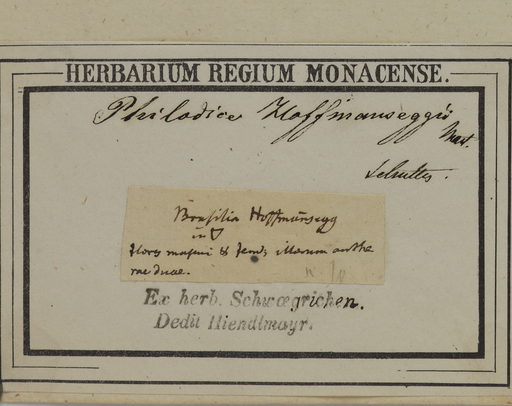 HERBARIUM REGIUM MONACENSE.
Philodice Hoffmanseggii
Mart.
Brasilia Hoffmansegg
flores masculi & femin illorum anthe
rae duae.
Ex herb. Schwœgrichen.
Dedit Hiendlmayr.